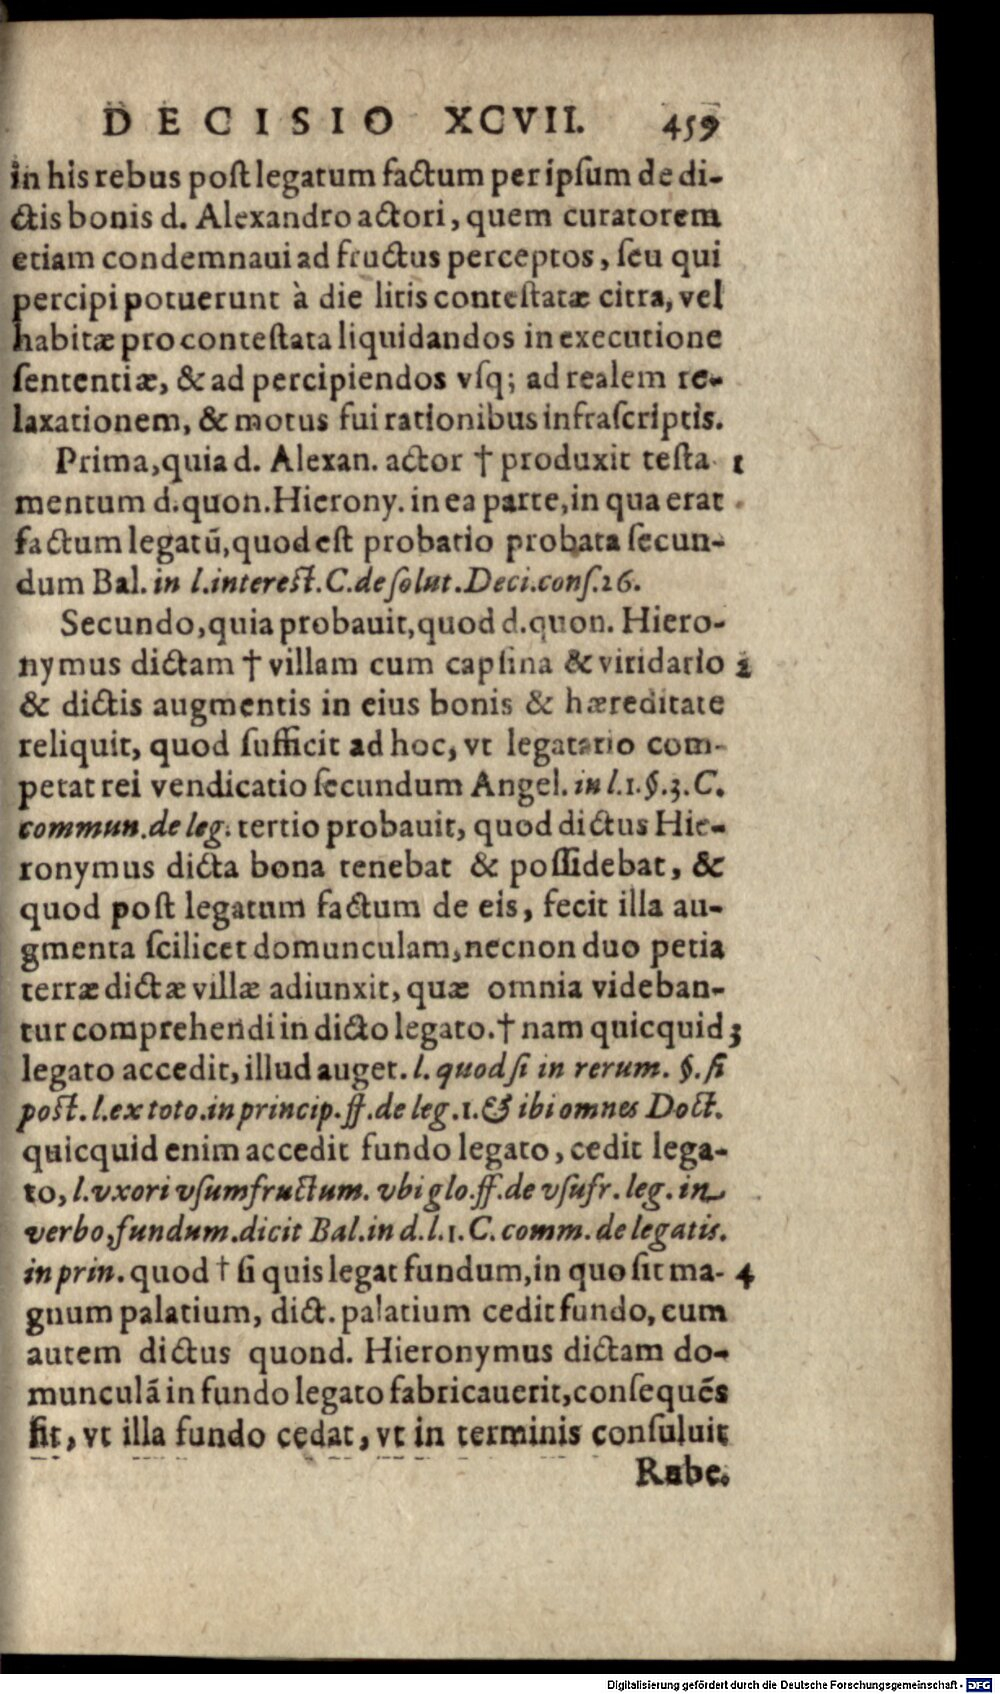 DECISIO XCVII. 459
in his rebus post legatum factum per ipsum de di-
ctis bonis d. Alexandro actori, quem curatorem
etiam condemnaui ad fructus perceptos, seu qui
percipi potuerunt à die litis contestatæ citra, vel
habitæ pro contestata liquidandos in executione
sententiæ, & ad percipiendos vsq; ad realem re-
laxationem, & motus fui rationibus infrascriptis.
Prima, quia d. Alexan. actor † produxit testa 1
mentum d. quon. Hierony. in ea parte, in qua erat
factum legatū, quod est probatio probata secun-
dum Bal. in l. interest. C. de solut. Deci. cons. 26.
Secundo, quia probauit, quod d. quon. Hiero-
nymus dictam † villam cum capsina & viridario 2
& dictis augmentis in eius bonis & hæreditate
reliquit, quod sufficit ad hoc, vt legatario com-
petat rei vendicatio secundum Angel. in l. 1. §. 3. C.
commun. de leg. tertio probauit, quod dictus Hie-
ronymus dicta bona tenebat & possidebat, &
quod post legatum factum de eis, fecit illa au-
gmenta scilicet domunculam, necnon duo petia
terræ dictæ villæ adiunxit, quæ omnia videban-
tur comprehendi in dicto legato. † nam quicquid 3
legato accedit, illud auget. l. quod si in rerum. §. si
post. l. ex toto. in princip. ff. de leg. 1. & ibi omnes Doct.
quicquid enim accedit fundo legato, cedit lega-
to, l. vxori vsumfructum. vbi glo. ff. de vsufr. leg. in
verbo, fundum. dicit Bal. in d. l. 1. C. comm. de legatis.
in prin. quod † si quis legat fundum, in quo sit ma- 4
gnum palatium, dict. palatium cedit fundo, cum
autem dictus quond. Hieronymus dictam do-
munculā in fundo legato fabricauerit, consequēs
fit, vt illa fundo cedat, vt in terminis consuluit
Rube.
Digitalisierung gefördert durch die Deutsche Forschungsgemeinschaft - DFG